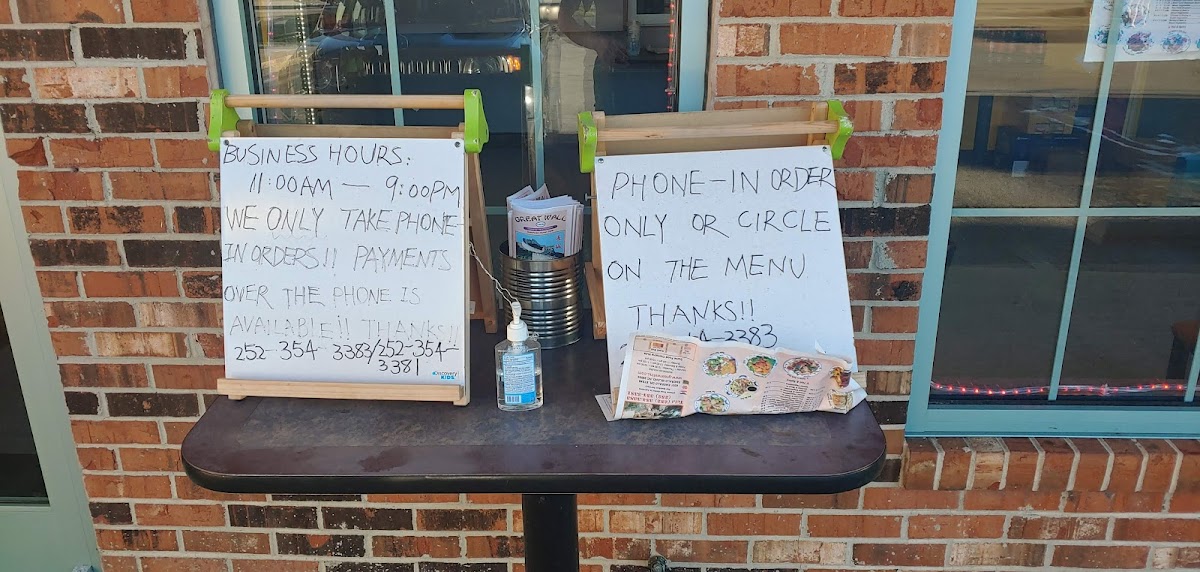 BUSINESS HOURS:
11:00AM — 9:00PM
WE ONLY TAKE PHONE-
IN ORDERS!! PAYMENTS
OVER THE PHONE IS
AVAILABLE!! THANKS!!
252-354-3383/252-354-
3381
Discovery
KIDS
GREAT WALL
PHONE-IN ORDER
ONLY OR CIRCLE
ON THE MENU
THANKS!!
4-3383